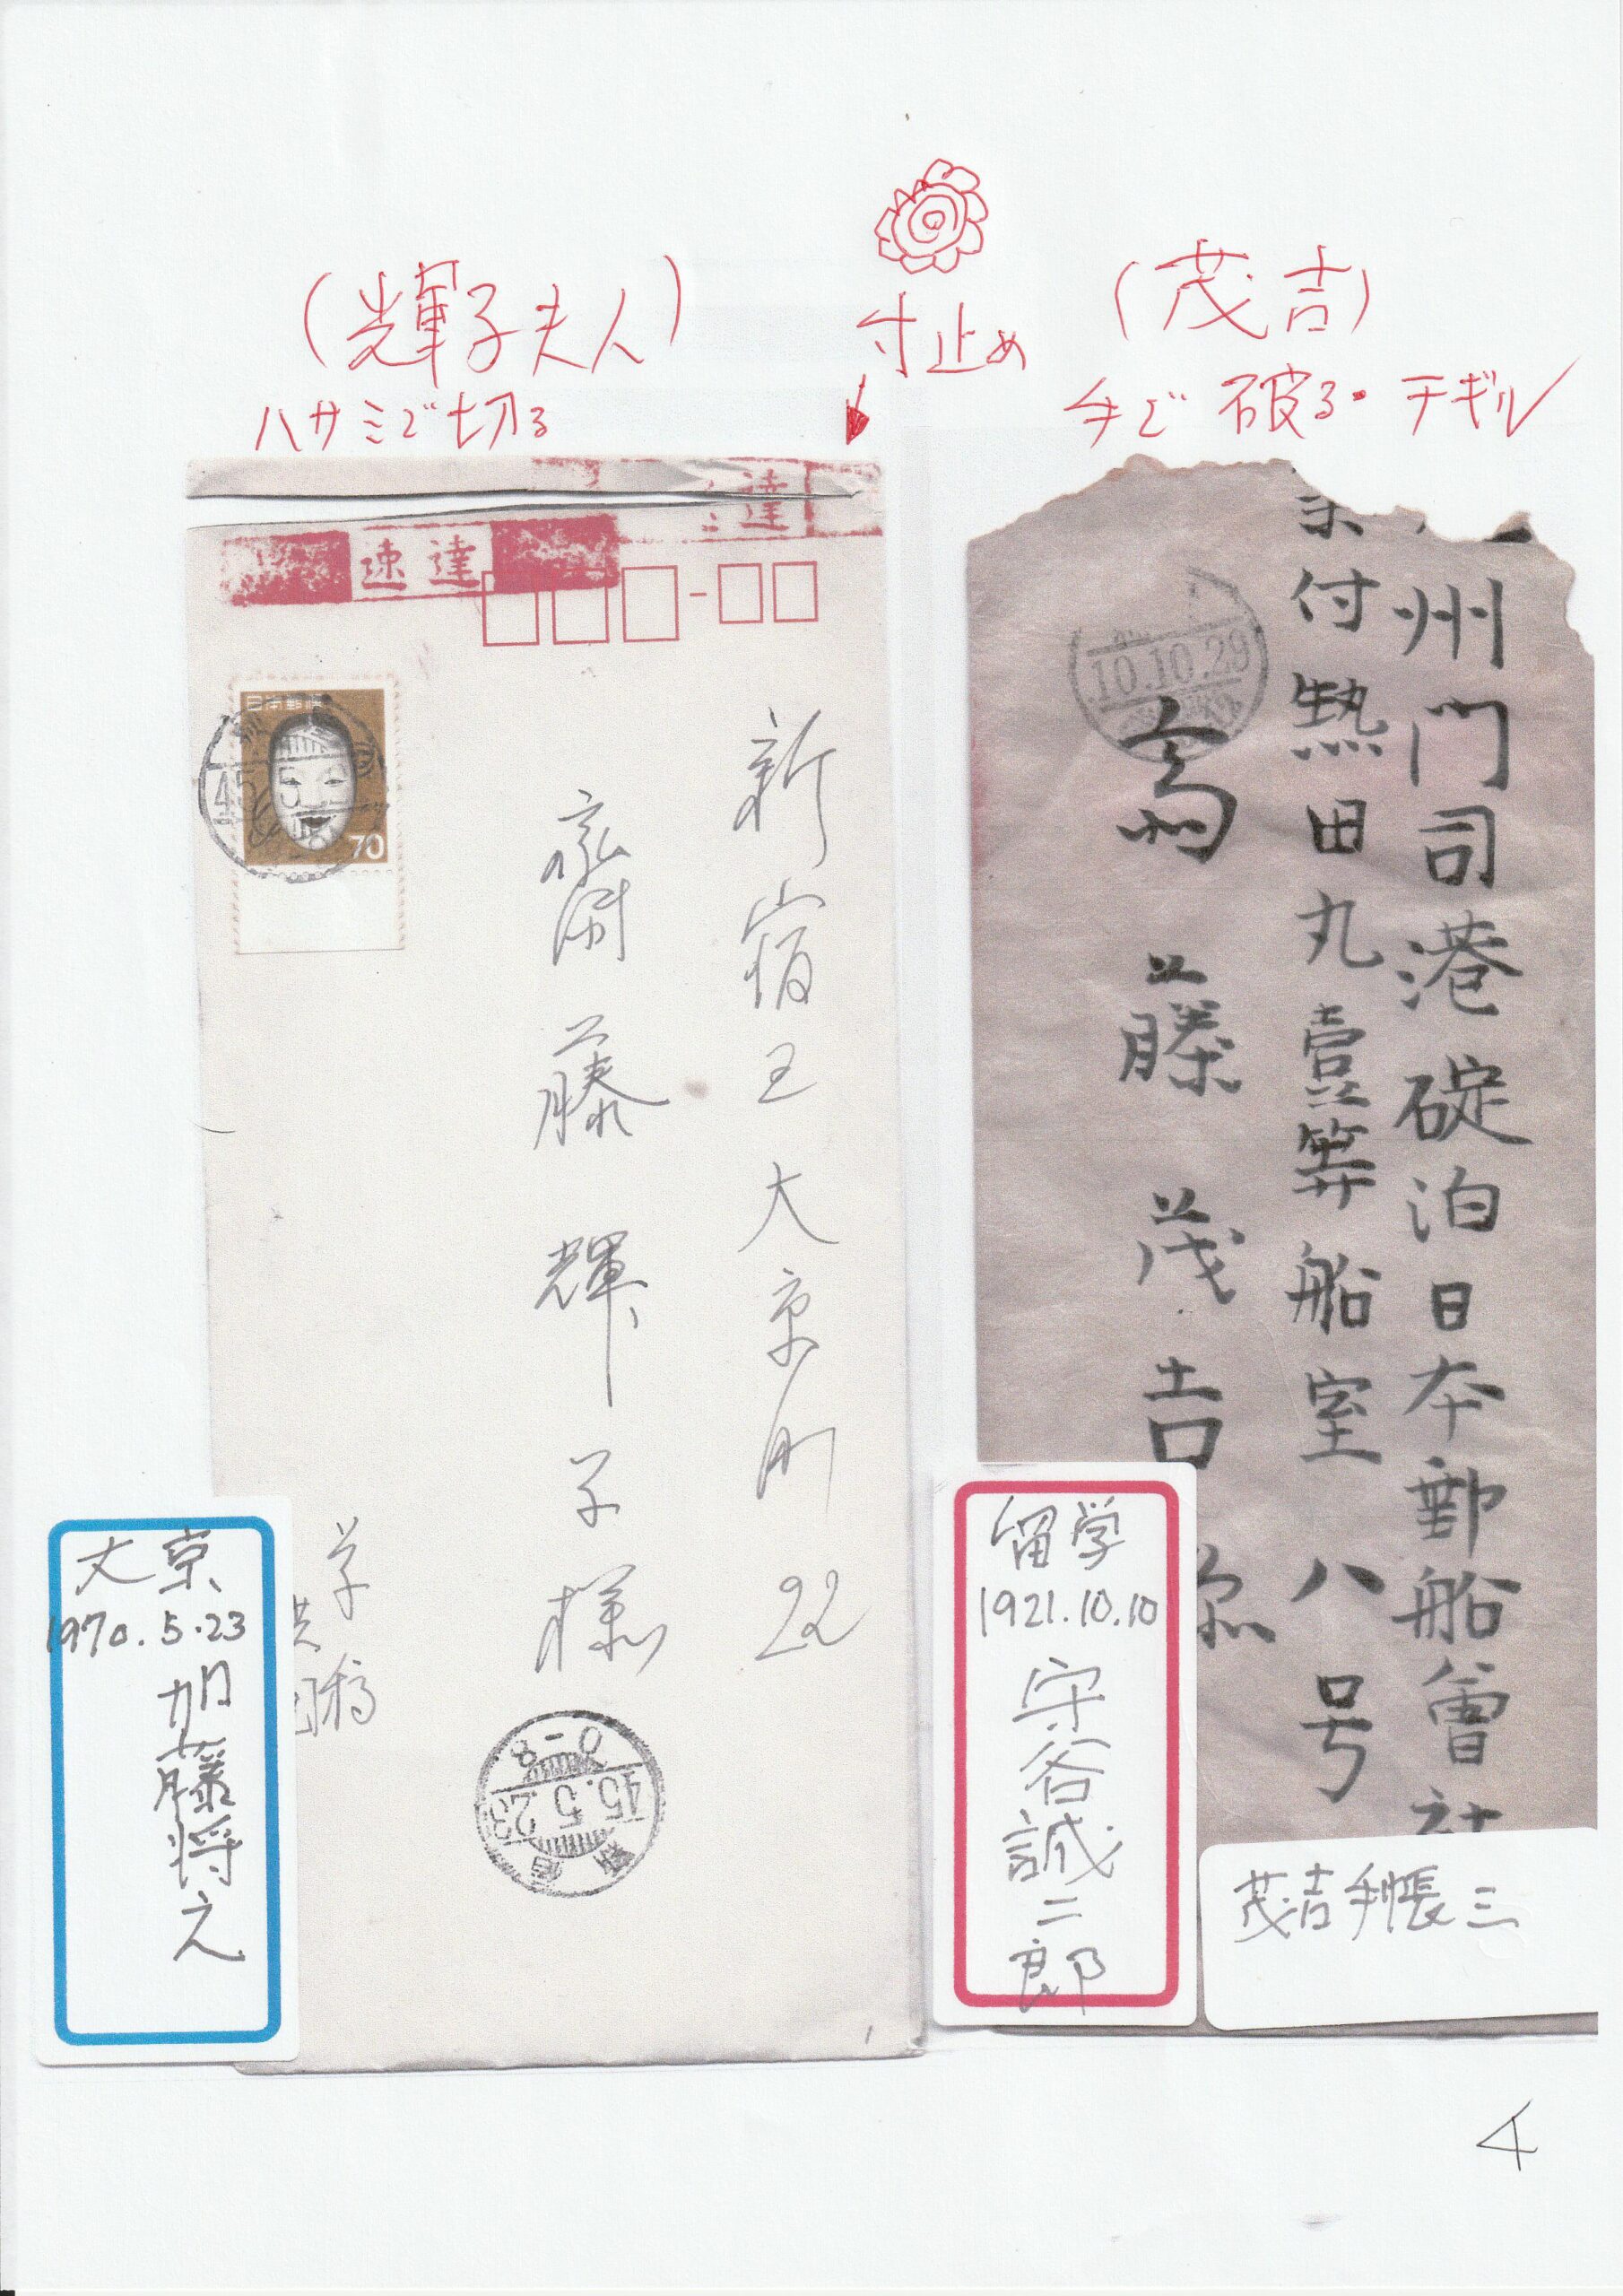 (輝子夫人)
ハサミで切る
寸止め
(茂吉)
手で破る・チギル
速達
達
日本郵便
70
45.5
新宿区大京町22
齋藤輝子様
学
供
稿
45.5.23
0-8
新宿
文京
1970.5.23
加藤将之
州門司港碇泊日本郵船會社
付熱田丸壹等船室八号
齋藤茂吉
10.10.29
留学
1921.10.10
守谷誠二郎
茂吉手帳三
4